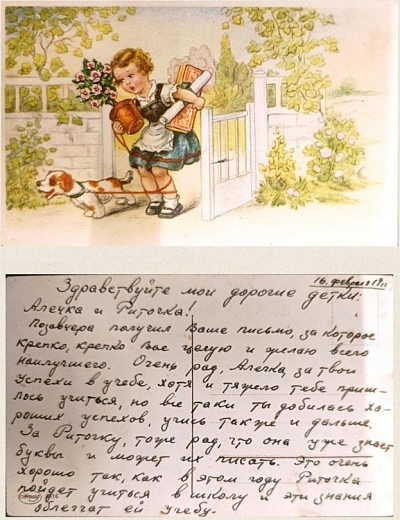 16. февраля
Здравствуйте мои дорогие детки:
Алечка и Риточка!
Позавчера получил Ваше письмо, за которое
крепко, крепко Вас целую и желаю всего
наилучшего. Очень рад, Алечка, за твои
успехи в учебе, хотя и тяжело тебе приш-
лось учиться, но все таки ты добилась хо-
роших успехов, учись также и дальше.
За Риточку, тоже рад, что она уже знает
буквы и может их писать. Это очень
хорошо так, как в этом году Риточка
пойдет учиться в школу и эти знания
облегчат ей учебу.